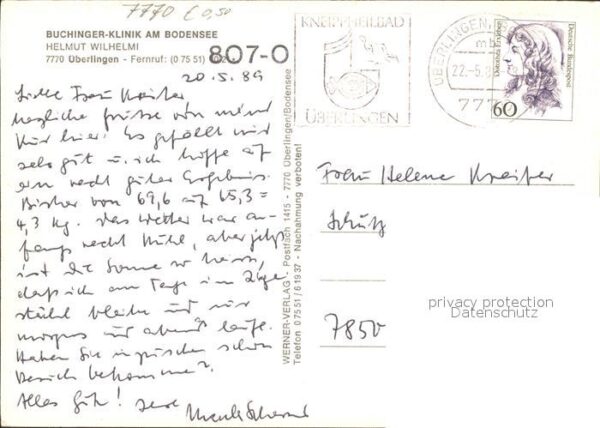 7770 € 0,50
BUCHINGER-KLINIK AM BODENSEE
HELMUT WILHELMI
7770 Überlingen - Fernruf: (0 75 51)
807-0
20.5.89
Liebe Frau
herzliche Grüsse von meiner
Kur hier! Es gefällt mir
sehr gut u. ich hoffe auf
ein recht gutes Ergebnis.
Bisher von 69,6 auf 65,3 =
4,3 Kg. Das Wetter war an-
fangs recht kühl, aber jetzt
ist die Sonne so heiss,
daß ich am Tage im Liege
stuhl bleibe und nur
morgens und abends laufe.
Haben Sie inzwischen schon
Besuch bekommen?
Alles Gute!
WERNER-VERLAG - Postfach 1415 - 7770 Überlingen/Bodensee
Telefon 07551/61937 - Nachahmung verboten!
KNEIPPHEILBAD
ÜBERLINGEN
ÜBERLINGEN
mb
22.-5.8
777
Dorothea Erxleben
Deutsche Bundespost
60
Frau Helene
7850
privacy protection
Datenschutz